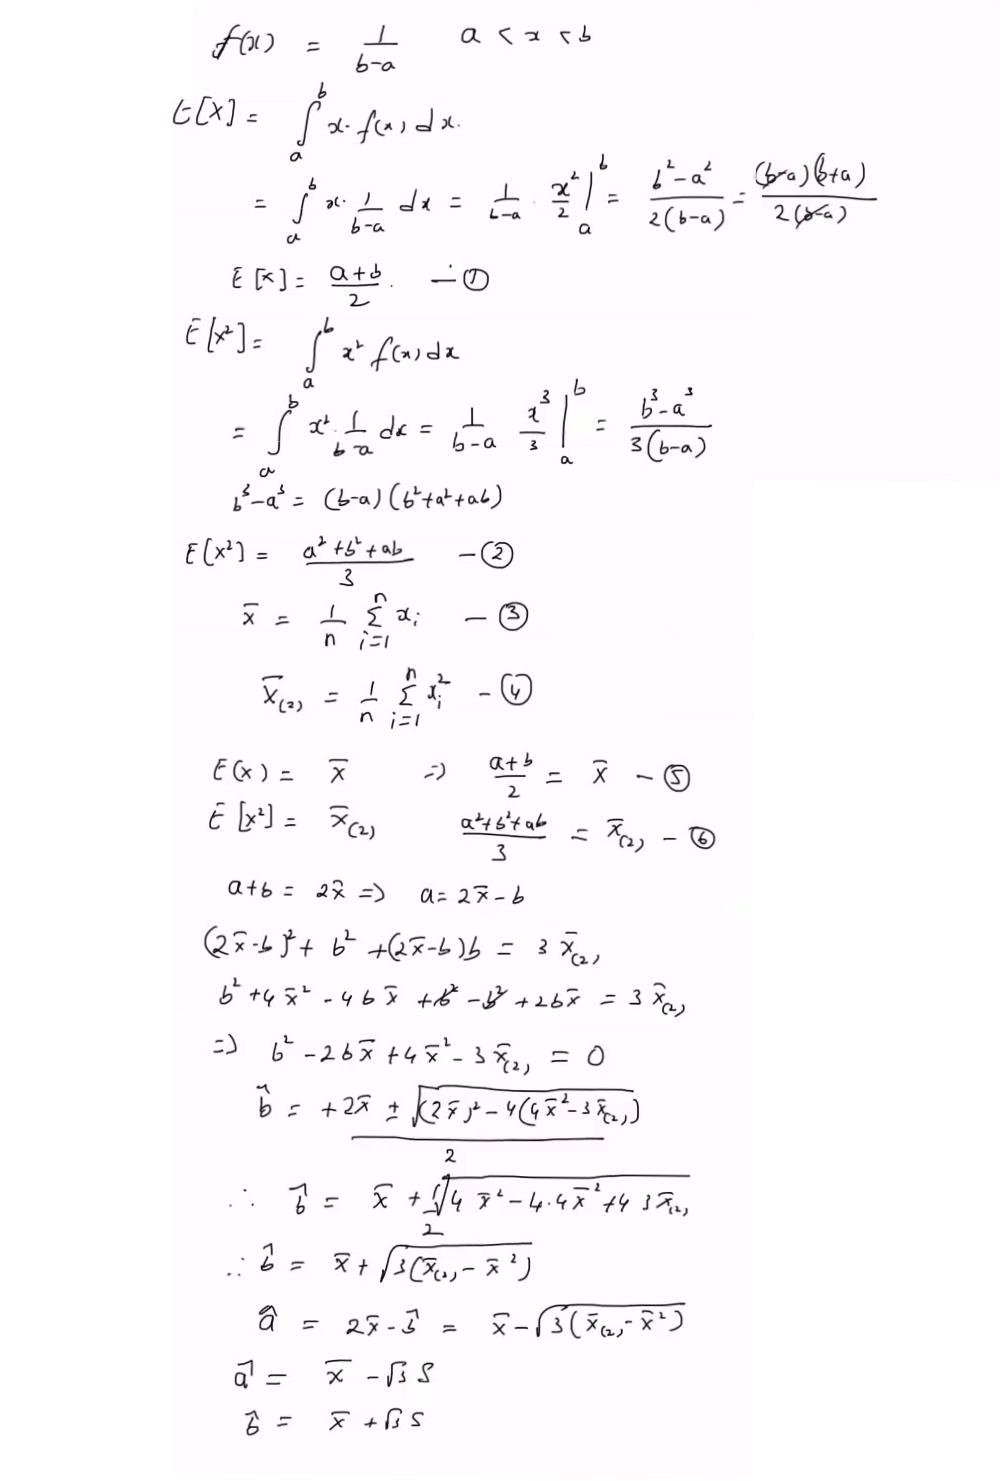 f(x) = 1/(b-a) a < x < b
E[X] = ∫_a^b x· f(x) dx.
= ∫_a^b x· 1/(b-a) dx = 1/(b-a) · x²/2 |_a^b = (b²-a²)/(2(b-a)) = ((b-a)(b+a))/(2(b-a))
E[x] = (a+b)/2. - ①
E[x²] = ∫_a^b x² f(x) dx
= ∫_a^b x²· 1/(b-a) dx = 1/(b-a) x³/3 |_a^b = (b³-a³)/(3(b-a))
b³-a³ = (b-a)(b²+a²+ab)
E[x²] = (a²+b²+ab)/3 - ②
x̄ = 1/n Σ_{i=1}^n x_i - ③
x̄_(2) = 1/n Σ_{i=1}^n x_i² - ④
E(x) = x̄ => (a+b)/2 = x̄ - ⑤
E[x²] = x̄_(2) (a²+b²+ab)/3 = x̄_(2) - ⑥
a+b = 2x̄ => a = 2x̄-b
(2x̄-b)² + b² + (2x̄-b)b = 3 x̄_(2)
b² + 4x̄² - 4bx̄ + b² - b² + 2bx̄ = 3 x̄_(2)
=> b² - 2bx̄ + 4x̄² - 3x̄_(2) = 0
b̂ = (+2x̄ ± √((2x̄)² - 4(4x̄² - 3x̄_(2))))/2
∴ b̂ = x̄ + √(4x̄² - 4·4x̄² + 4 3x̄_(2))/2
∴ b̂ = x̄ + √(3(x̄_(2) - x̄²))
â = 2x̄ - b̂ = x̄ - √(3(x̄_(2) - x̄²))
â = x̄ - √3 S
b̂ = x̄ + √3 S